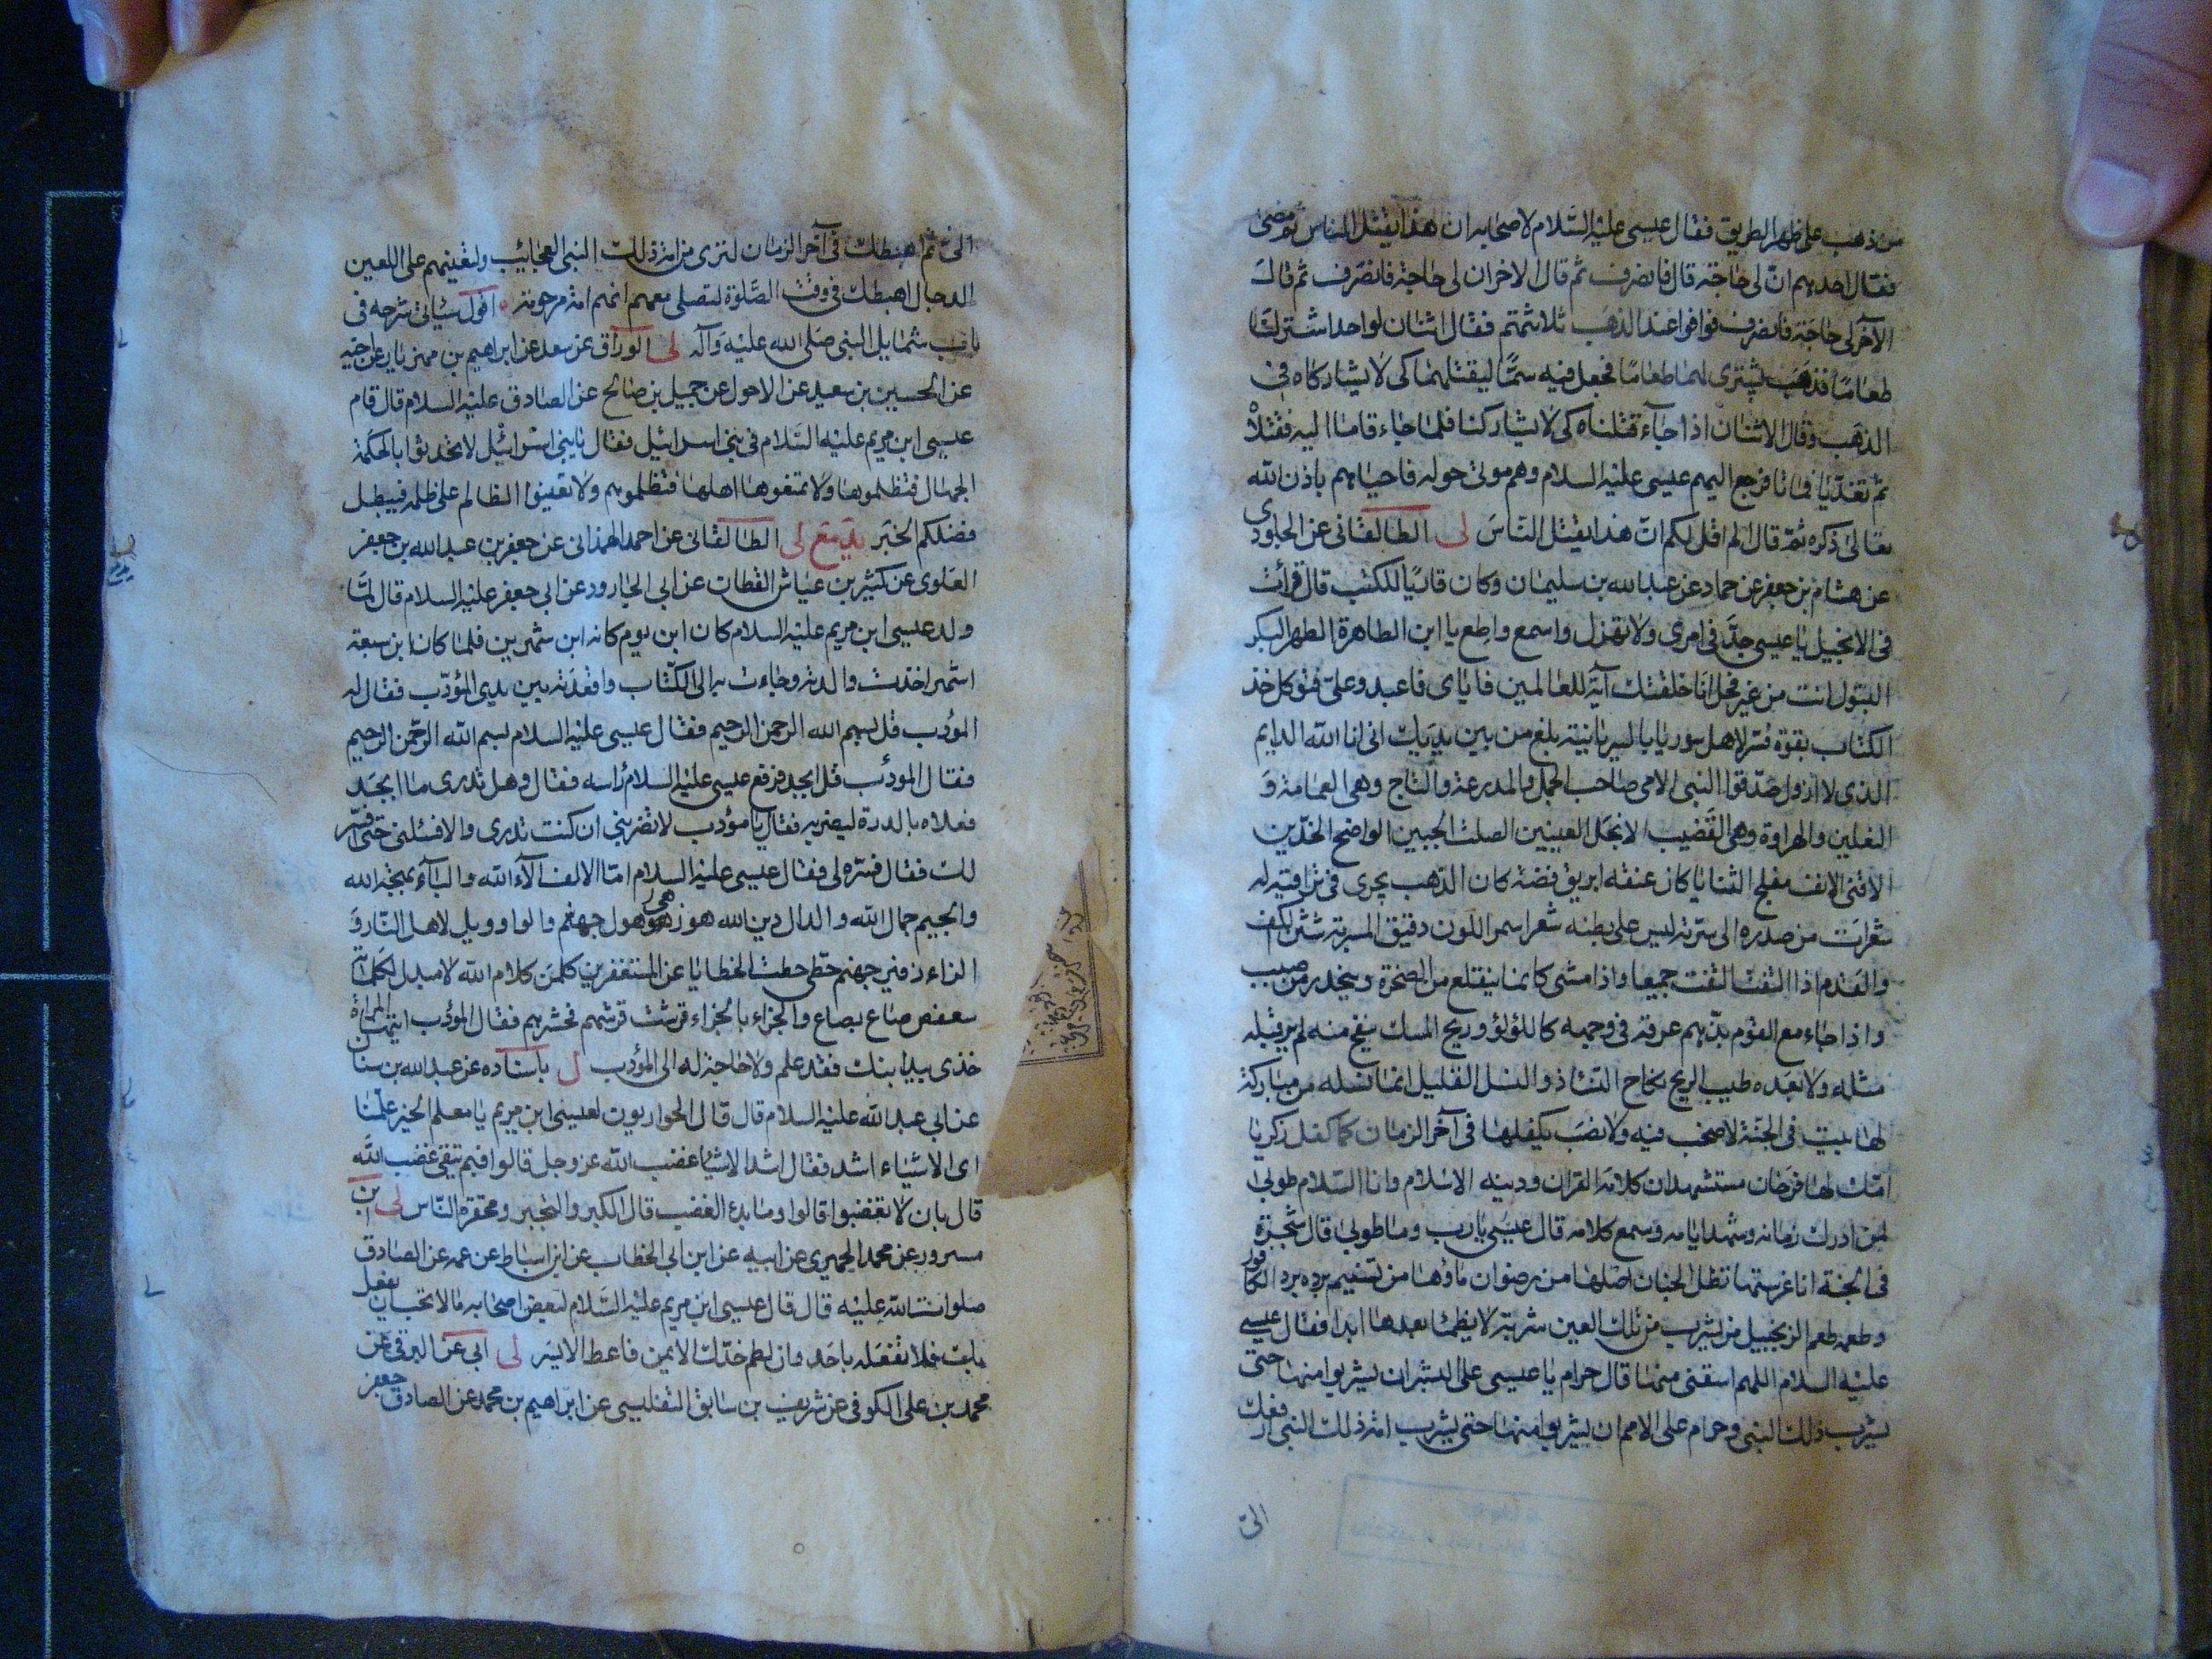 من ذهب على ظهر الطريق فقال عيسى عليه السلام لاصحابه ان هذا يقتل الناس ثم مضى
فقال احدهم ان لى حاجة قال فانصرف ثم قال الاخر ان لى حاجة فانصرف ثم قال
الآخر لى حاجة فانصرف فوافوا عند الذهب ثلاثتهم فقال اثنان لواحد اشتر لنا
طعاما فذهب يشترى لهما طعاما فجعل فيه سما ليقتلهما كى لا يشاركاه فى
الذهب وقال الاثنان اذا جآء قتلناه كى لا يشاركنا فلما جاء قاما اليه فقتلاه
ثم تغديا فماتا فرجع اليهم عيسى عليه السلام وهم موتى حوله فاحياهم باذن الله
تعالى ذكره ثم قال الم اقل لكم ان هذا يقتل الناس لى الطالقانى عن الجلودى
عن هشام بن جعفر عن حماد عن عبد الله بن سليمان وكان قاريا للكتب قال قرأت
فى الانجيل يا عيسى جد فى امرى ولا تهزل واسمع واطع يا ابن الطاهرة الطهر البكر
البتول انت من غير فحل انا خلقتك آية للعالمين فاياى فاعبد وعلى فتوكل خذ
الكتاب بقوة فسر لاهل سوريا بالسريانية بلغ من بين يديك انى انا الله الدايم
الذى لا ازول صدقوا النبى الامى صاحب الجمل والمدرعة والتاج وهى العمامة و
النعلين والهراوة وهى القضيب الانجل العينين الصلت الجبين الواضح الخدين
الاقنى الانف مفلج الثنايا كان عنقه ابريق فضة كان الذهب يجرى فى تراقيه له
شعرات من صدره الى سرته ليس على بطنه شعر اسمر اللون دقيق المسربة شثن الكف
والقدم اذا التفت التفت جميعا واذا مشى كانما ينقلع من الصخرة وينحدر من صبب
واذا جاء مع القوم بذهم عرقه فى وجهه كاللؤلؤ وريح المسك ينفح منه لم ير قبله
مثله ولا بعده طيب الريح نكاح النساء ذو النسل القليل انما نسله من مباركة
لها بيت فى الجنة لا صخب فيه ولا نصب يكفلها فى آخر الزمان كما كفل زكريا
امك لها فرخان مستشهدان كلامه القران ودينه الاسلام وانا السلام طوبى
لمن ادرك زمانه وشهد ايامه وسمع كلامه قال عيسى يا رب وما طوبى قال شجرة
فى الجنة انا غرستها تظل الجنان اصلها من رضوان ماؤها من تسنيم برده برد الكافور
وطعمه طعم الزنجبيل من يشرب من تلك العين شربة لا يظمأ بعدها ابدا فقال عيسى
عليه السلام اللهم اسقنى منها قال حرام يا عيسى على البشر ان يشربوا منها حتى
يشرب ذلك النبى وحرام على الامم ان يشربوا منها حتى يشرب امة ذلك النبى ارفعك
الى
الى ثم اهبطك فى آخر الزمان لترى من امة ذلك النبى العجائيب ولتعينهم على اللعين
الدجال اهبطك فى وقت الصلوة لتصلى معهم انهم امة مرحومة اقول سيأتى شرحه فى
باب شمايل النبى صلى الله عليه وآله لى الوراق عن سعد عن ابراهيم بن مهزيار عن اخيه
عن الحسين بن سعيد عن الاحول عن جميل بن صالح عن الصادق عليه السلام قال قام
عيسى ابن مريم عليه السلام فى بنى اسرائيل فقال يا بنى اسرائيل لا تحدثوا بالحكمة
الجهال فتظلموها ولا تمنعوها اهلها فتظلموهم ولا تعينوا الظالم على ظلمه فيبطل
فضلكم الخبر يد مع لى الطالقانى عن احمد الهمدانى عن جعفر بن عبد الله بن جعفر
العلوى عن كثير بن عياش القطان عن ابى الجارود عن ابى جعفر عليه السلام قال لما
ولد عيسى ابن مريم عليه السلام كان ابن يوم كانه ابن شهرين فلما كان ابن سبعة
اشهر اخذت والدته وجاءت به الى الكتاب واقعدته بين يدى المؤدب فقال له
المؤدب قل بسم الله الرحمن الرحيم فقال عيسى عليه السلام بسم الله الرحمن الرحيم
فقال المودب قل ابجد فرفع عيسى عليه السلام راسه فقال وهل تدرى ما ابجد
فعلاه بالدرة ليضربه فقال يا مؤدب لا تضربنى ان كنت تدرى والا فسئلنى حتى افسر
لك فقال فسره لى فقال عيسى عليه السلام اما الالف آلاء الله والبآء بهجة الله
والجيم جمال الله والدال دين الله هوز هى هول جهنم والواو ويل لاهل النار و
الزاء زفير جهنم حطى حطت الخطايا عن المستغفرين كلمن كلام الله لا مبدل لكلماته
سعفص صاع بصاع والجزاء بالجزاء قرشت قرشهم فحشرهم فقال المؤدب ايتها المراة
خذى بيد ابنك فقد علم ولا حاجة له الى المؤدب ل باسناده عن عبد الله بن سنان
عن ابى عبد الله عليه السلام قال قال الحواريون لعيسى ابن مريم يا معلم الخير علمنا
اى الاشياء اشد فقال اشد الاشياء غضب الله عز وجل قالوا فبم يتقى غضب الله
قال بان لا تغضبوا قالوا وما بدء الغضب قال الكبر والتجبر ومحقرة الناس لى ابن
مسرور عن محمد الحميرى عن ابيه عن ابن ابى الخطاب عن ابن اسباط عن عمه عن الصادق
صلوات الله عليه قال قال عيسى ابن مريم عليه السلام لبعض اصحابه ما لا تحب ان يفعل
بك فلا تفعله باحد وان لطم خدك الايمن فاعط الايسر لى ابى عن البرقى عن
محمد بن على الكوفى عن شريف بن سابق التفليسى عن ابراهيم بن محمد عن الصادق جعفر